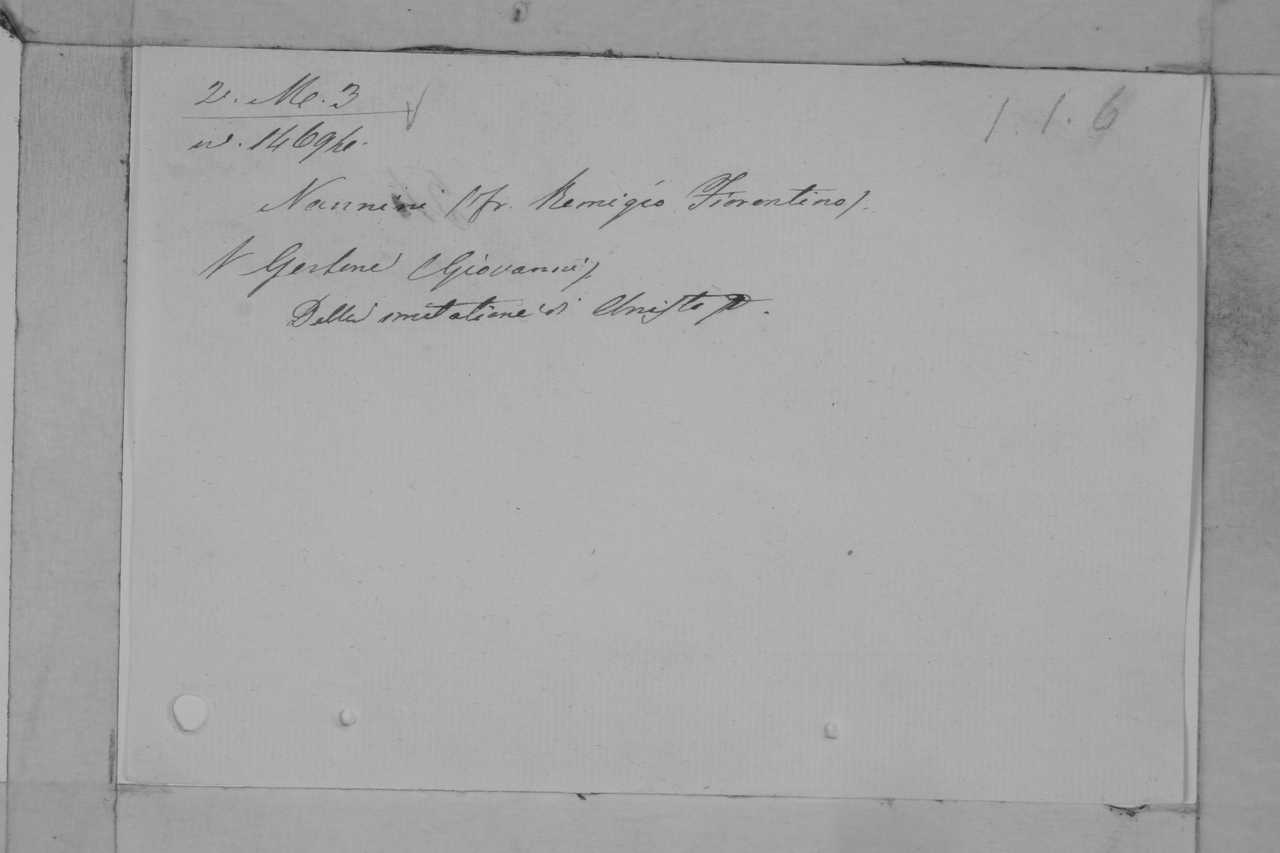 2. M. 3
1. 1. 6
Nannini (fr. Remigio Fiorentino).
V Gersone (Giovanni)
Della imitatione di Christo